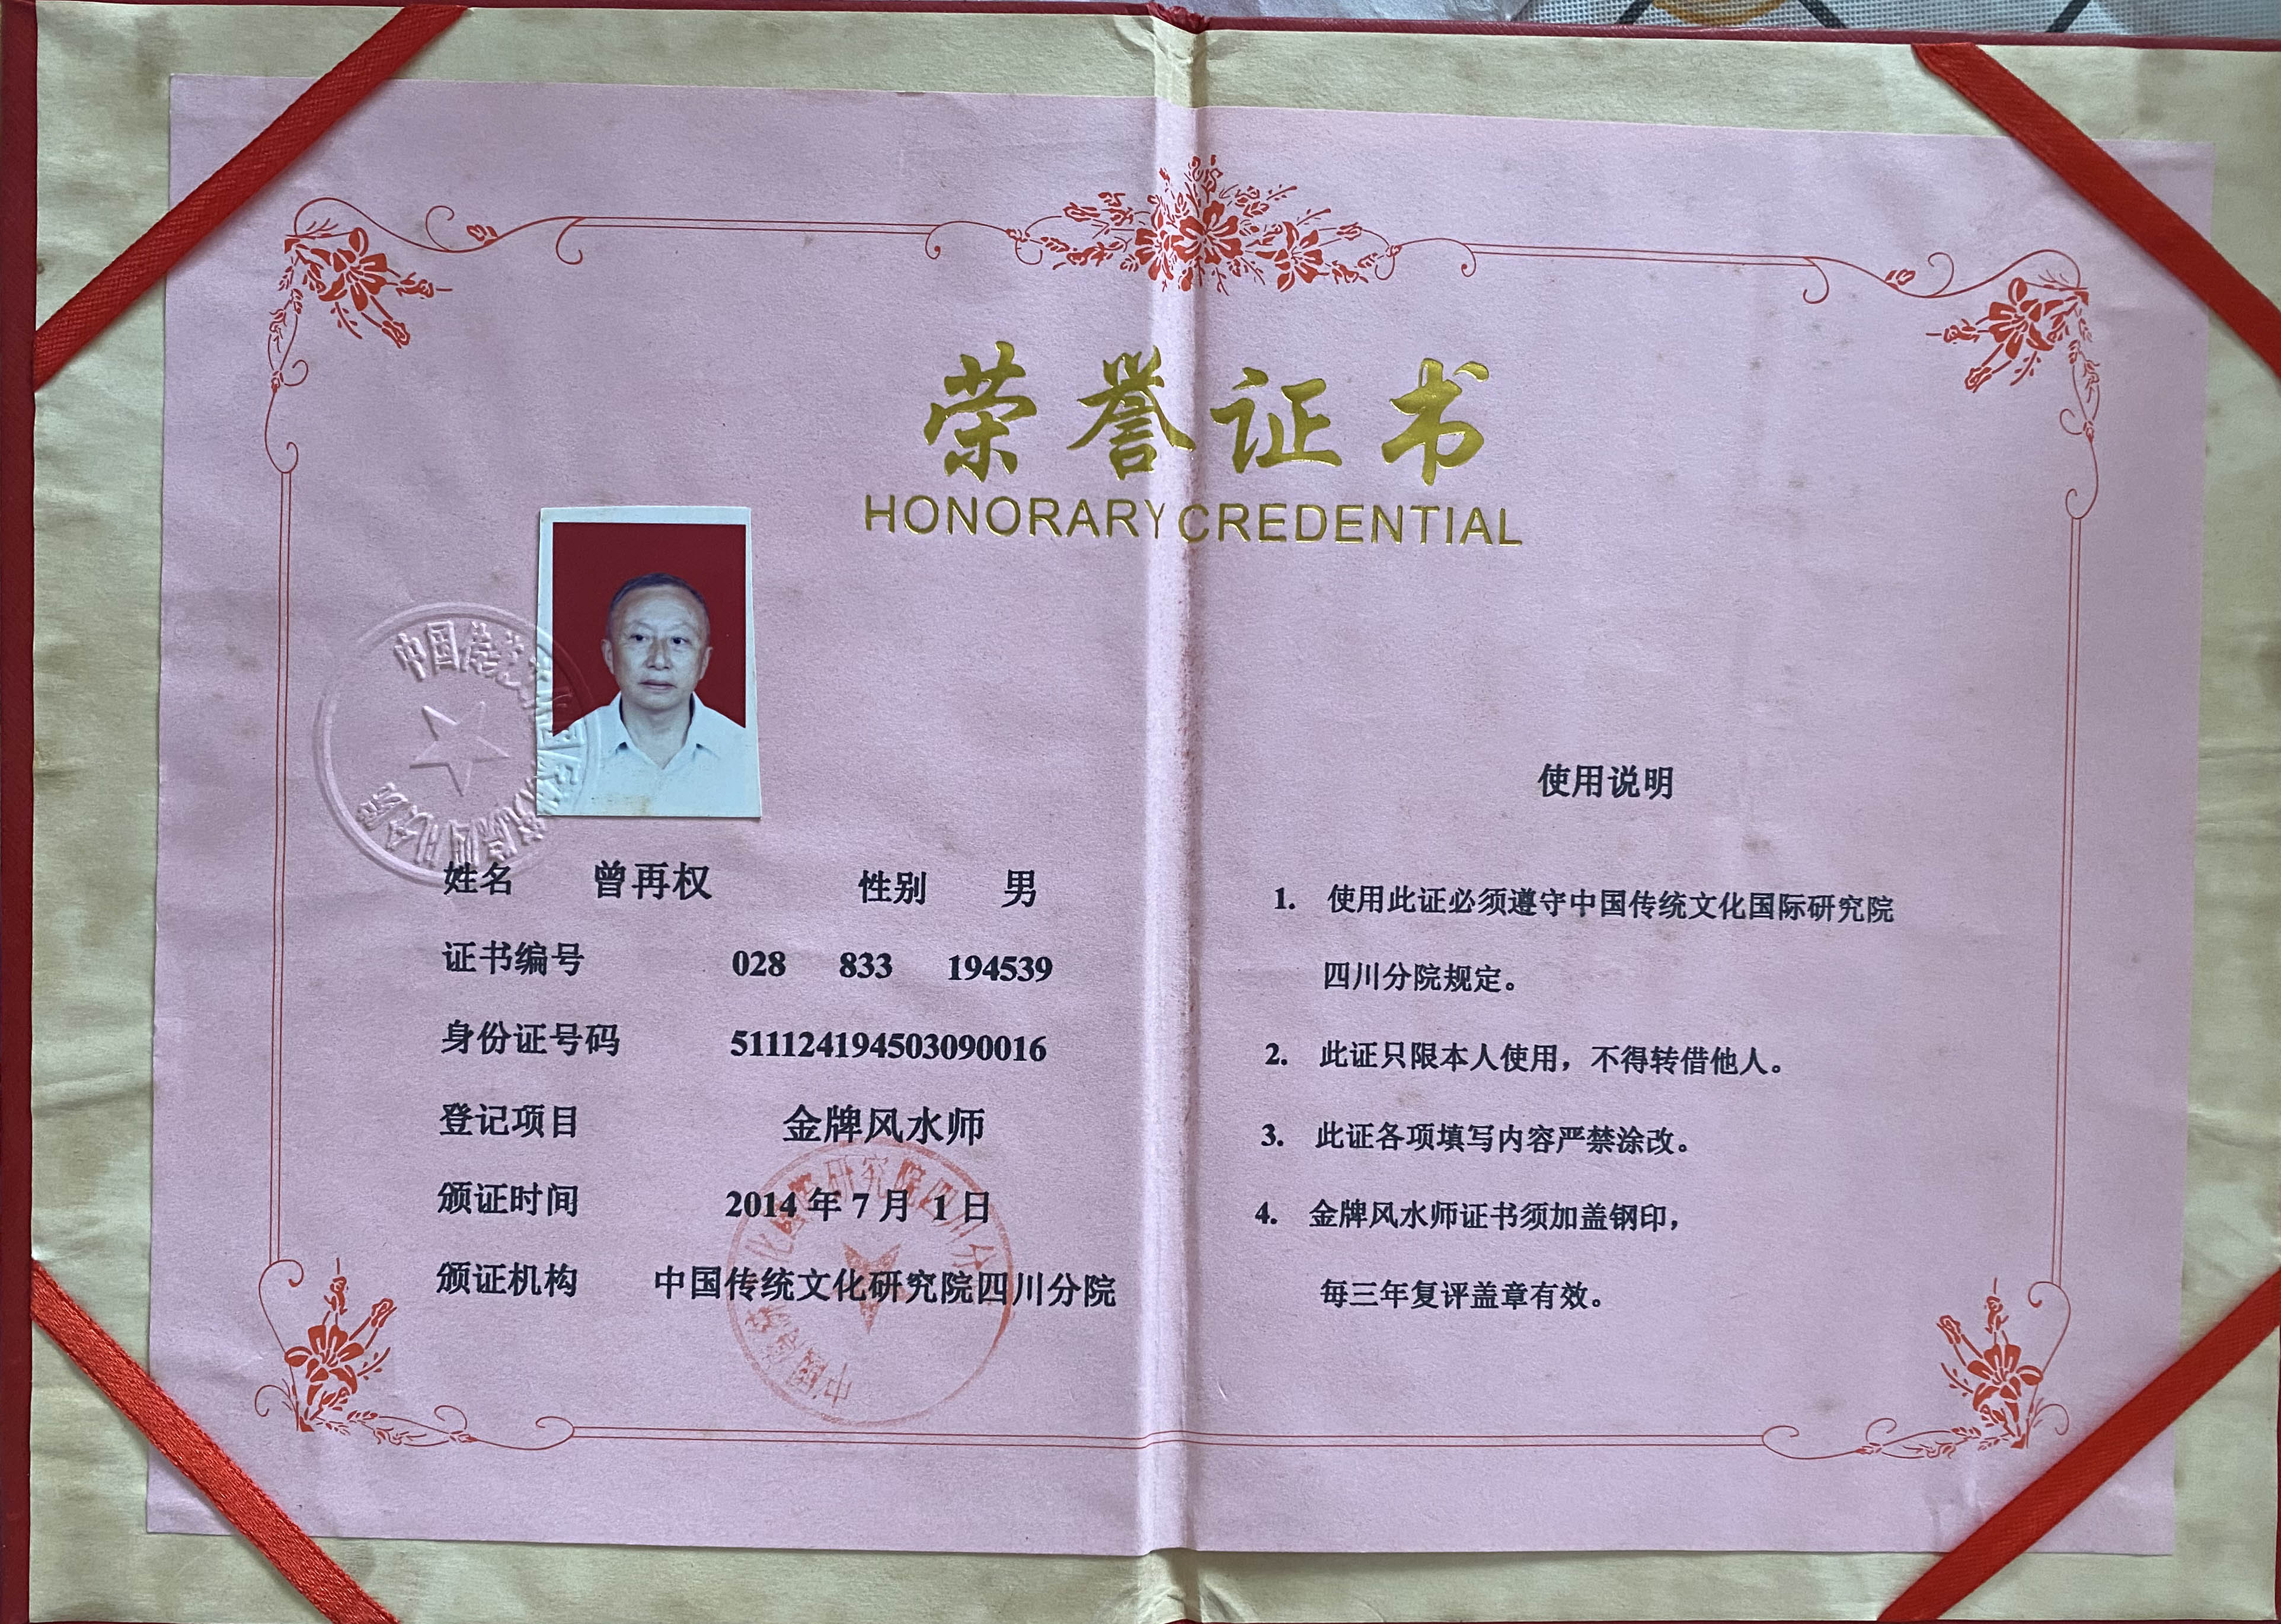 荣誉证书
HONORARY CREDENTIAL
姓名 曾再权 性别 男
证书编号 028 833 194539
身份证号码 511124194503090016
登记项目 金牌风水师
颁证时间 2014年7月1日
颁证机构 中国传统文化研究院四川分院
使用说明
1. 使用此证必须遵守中国传统文化国际研究院
四川分院规定。
2. 此证只限本人使用，不得转借他人。
3. 此证各项填写内容严禁涂改。
4. 金牌风水师证书须加盖钢印，
每三年复评盖章有效。